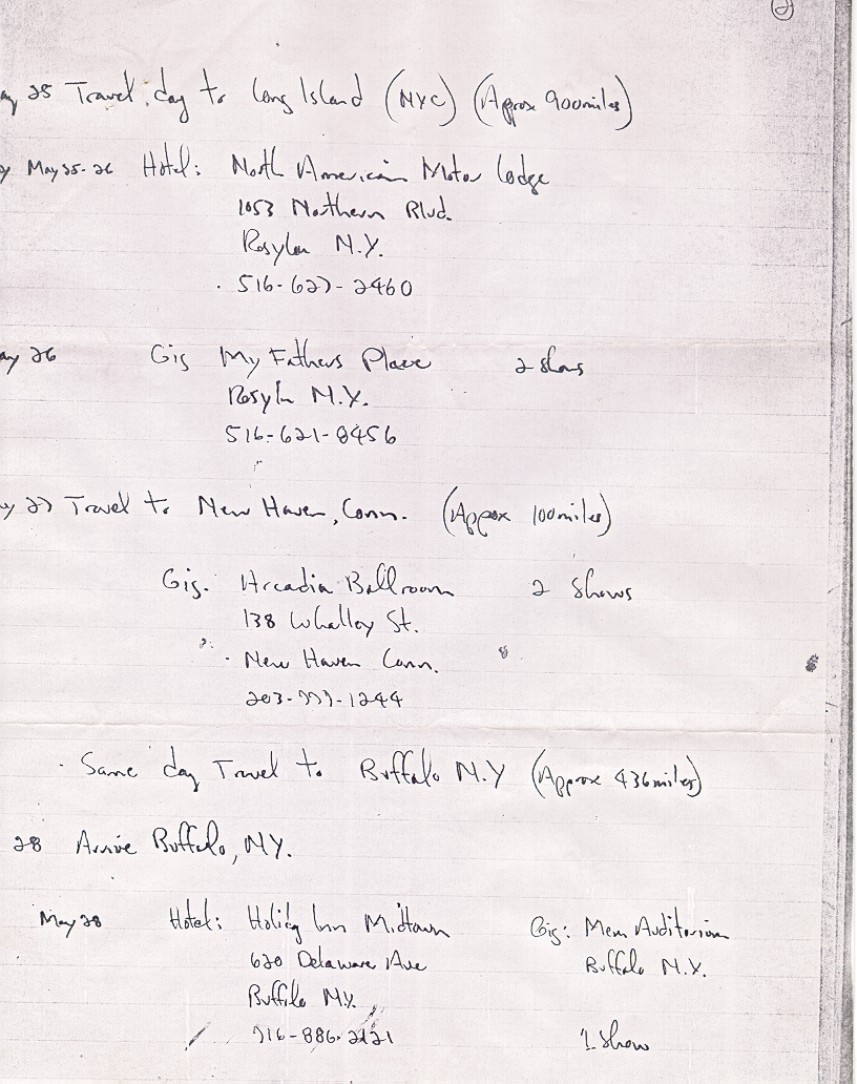 2
ay 25 Travel day to Long Island (NYC) (Approx 900 miles)
y May 25-26 Hotel: North American Motor Lodge
1053 Northern Blvd.
Rosyln N.Y.
516-627-2460
ay 26 Gig My Fathers Place 2 shows
Rosyln N.Y.
516-621-8456
y 27 Travel to New Haven, Conn. (Approx 100 miles)
Gig. Arcadia Ballroom 2 Shows
138 Whalley St.
New Haven Conn.
203-777-1244
Same day Travel to Buffalo N.Y (Approx 436 miles)
28 Arrive Buffalo, NY.
May 28 Hotel: Holiday Inn Midtown Gig: Mem Auditorium
620 Delaware Ave Buffalo N.Y.
Buffalo N.Y.
716-886-2121 1 Show